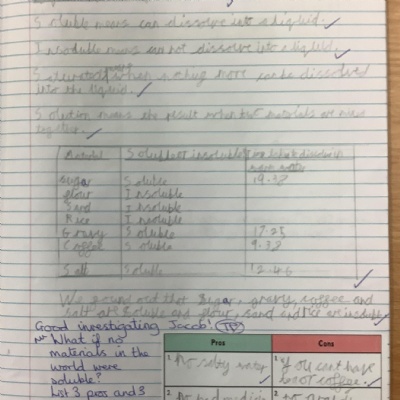 Soluble means can dissolve into a liquid.
Insoluble means can not dissolve into a liquid.
when nothing more can be dissolved
into the liquid.
Solution means the result when two materials are mixed
together.
Material Soluble or insoluble Time taken to dissolve in
warm water
Sugar Soluble 19.38
flour Insoluble
Sand Insoluble
Rice Insoluble
Gravy Soluble 17.25
Coffee Soluble 9.38
Salt Soluble 12.46
We found out that sugar, gravy, coffee and
salt are soluble and flour, sand and rice are insoluble
Good investigating Jacob!
What if no
materials in the
world were
soluble?
List 3 pros and 3
Pros Cons
1. No salty water
1. You cant have
hot coffee.
2. No
2. No gravy